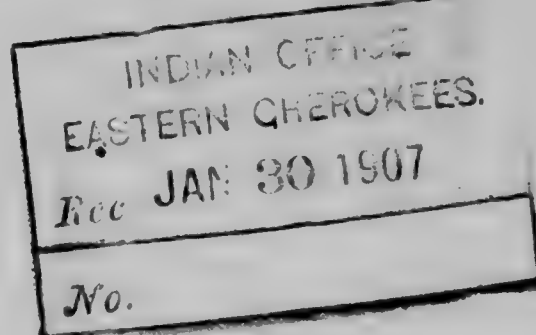 INDIAN OFFICE
EASTERN CHEROKEES.
Rec JAN 30 1907
No.